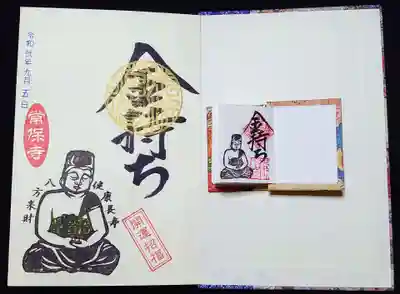 令和元年九月五日
常保寺
金持ち
健康長寿
八方来財
開運招福
金持ち